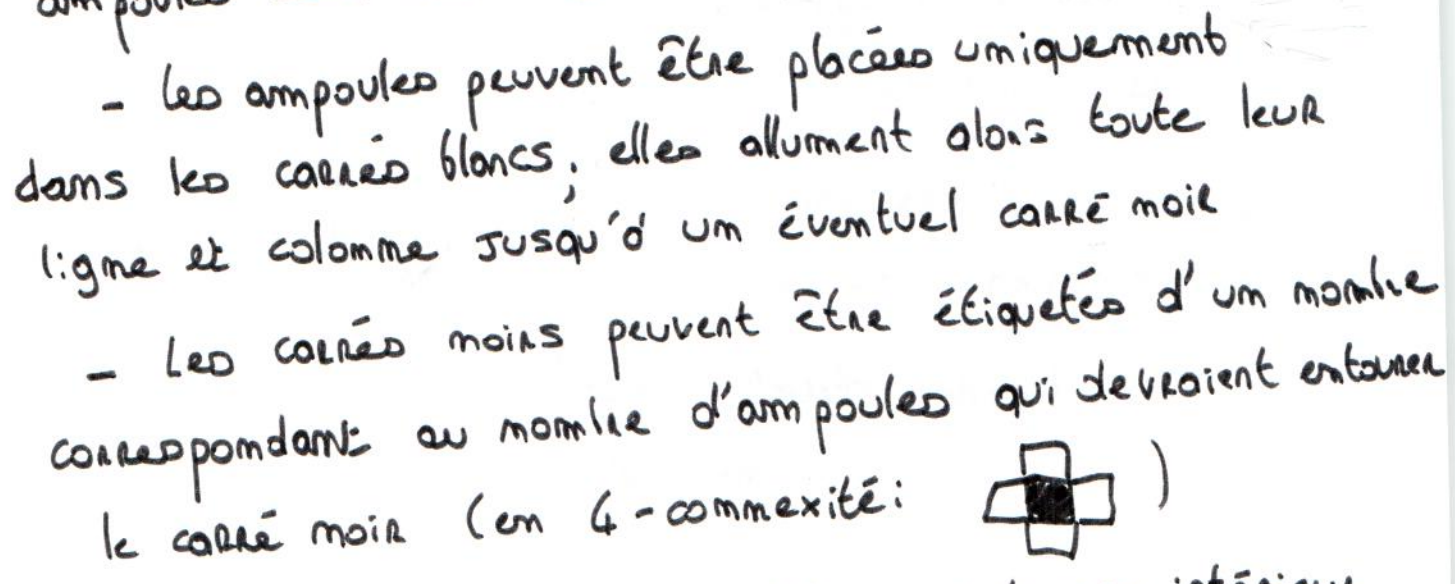 ampoules
- les ampoules peuvent être placées uniquement
dans les carrés blancs; elles allument alors toute leur
ligne et colonne jusqu'à un éventuel carré noir
- Les carrés noirs peuvent être étiquetés d'un nombre
correspondant au nombre d'ampoules qui devraient entourer
le carré noir (en 4-connexité: )